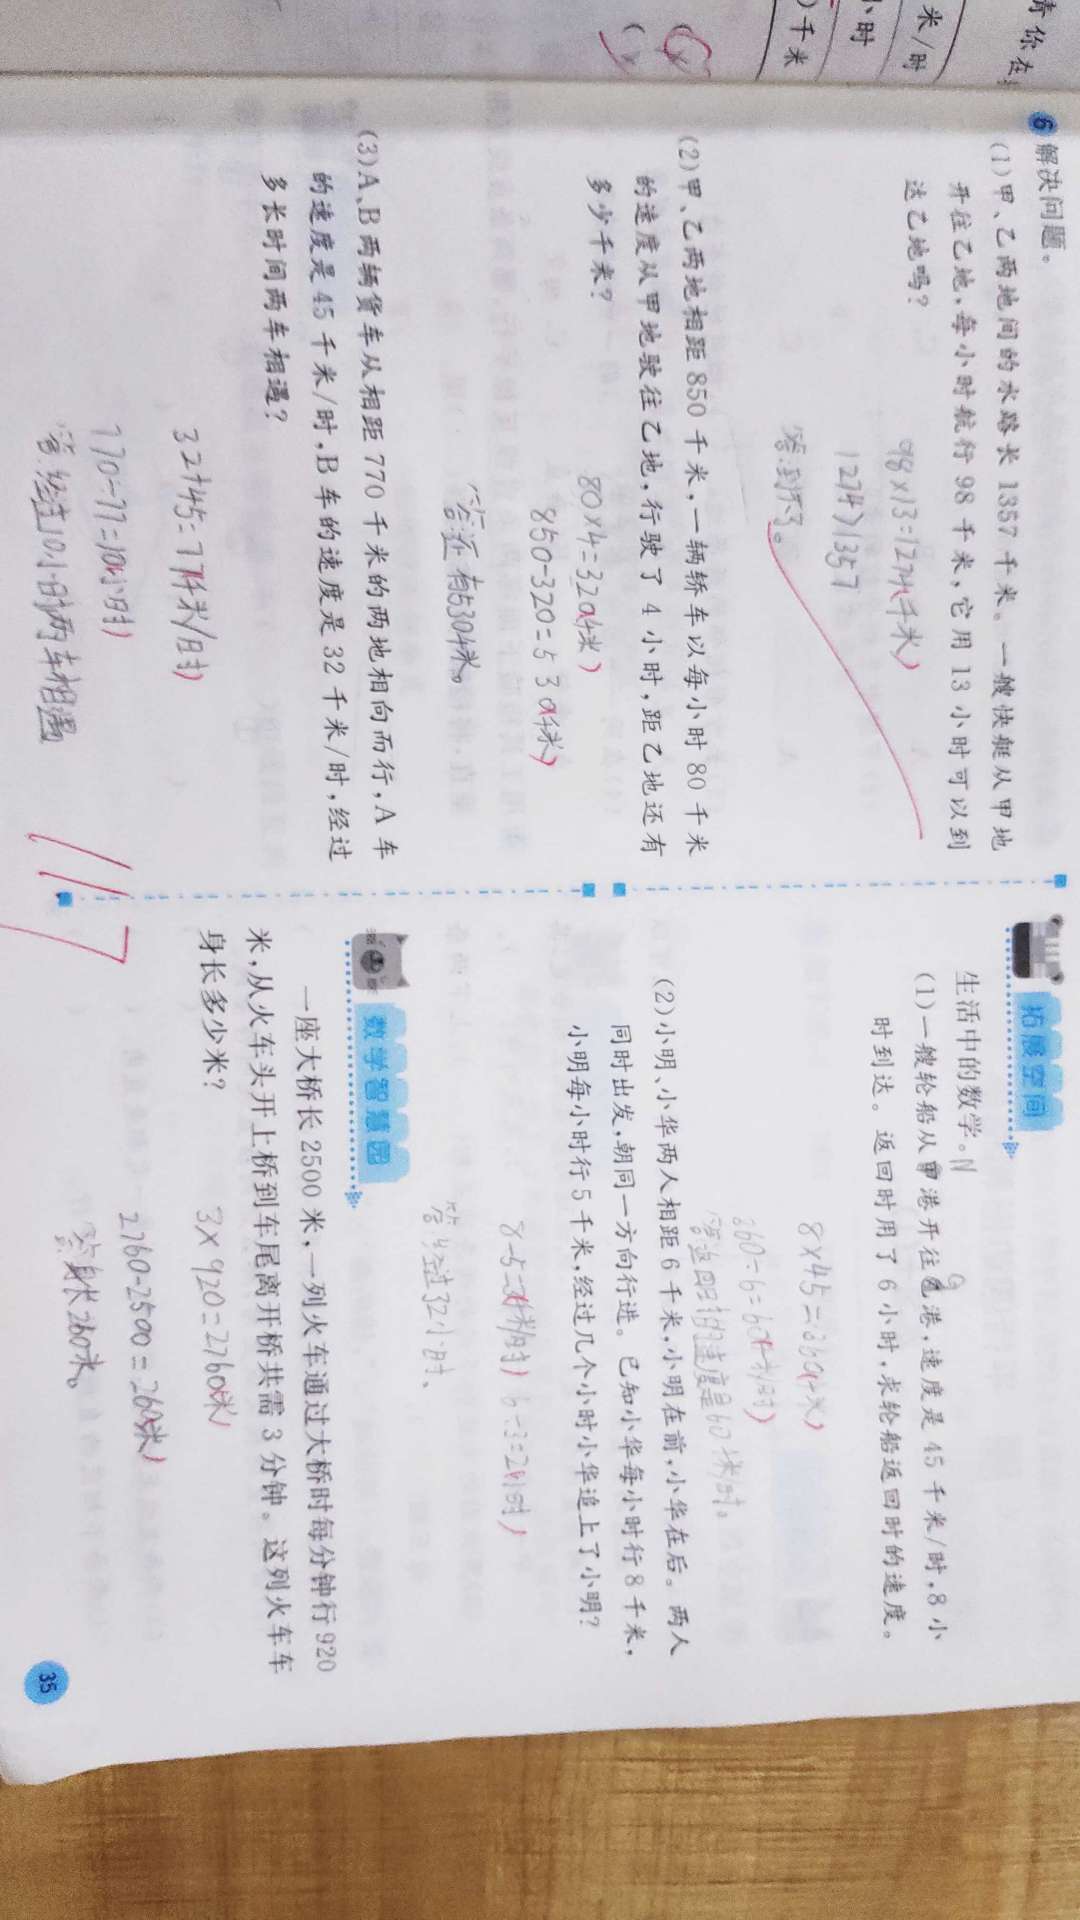 青你在
米/时
小时
)千米
6 解决问题。
(1)甲、乙两地间的水路长1357千米。一艘快艇从甲地
开往乙地,每小时航行98千米,它用13小时可以到
达乙地吗?
98×13=1274(千米)
1274>1357
答:到不了。
(2)甲、乙两地相距850千米,一辆轿车以每小时80千米
的速度从甲地驶往乙地,行驶了4小时,距乙地还有
多少千米?
80×4=320(千米)
850-320=530(千米)
答:还有530千米。
(3)A、B两辆货车从相距770千米的两地相向而行,A车
的速度是45千米/时,B车的速度是32千米/时,经过
多长时间两车相遇?
32+45=77(千米/时)
770÷77=10(小时)
答:经过10小时两车相遇
117
拓展空间
生活中的数学。N
(1)一艘轮船从甲港开往乙港,速度是45千米/时,8小
时到达。返回时用了6小时,求轮船返回时的速度。
8×45=360(千米)
360÷6=60(千米/时)
答:返回时的速度是60千米/时。
(2)小明、小华两人相距6千米,小明在前,小华在后。两人
同时出发,朝同一方向行进。已知小华每小时行8千米,
小明每小时行5千米,经过几个小时小华追上了小明?
8-5=3(千米/时) 6÷3=2(小时)
答:经过32小时、
数学智慧园
一座大桥长2500米,一列火车通过大桥时每分钟行920
米,从火车头开上桥到车尾离开桥共需3分钟。这列火车车
身长多少米?
3×920=2760(米)
2760-2500=260(米)
答:身长260米。
35